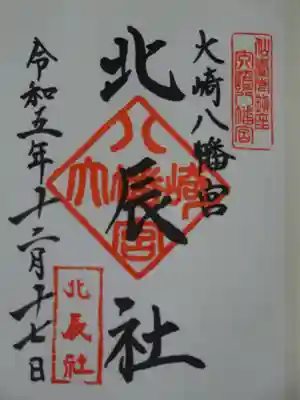 大崎八幡宮
北辰社
令和五年十二月十七日
大崎八幡宮
大崎八幡宮
北辰社